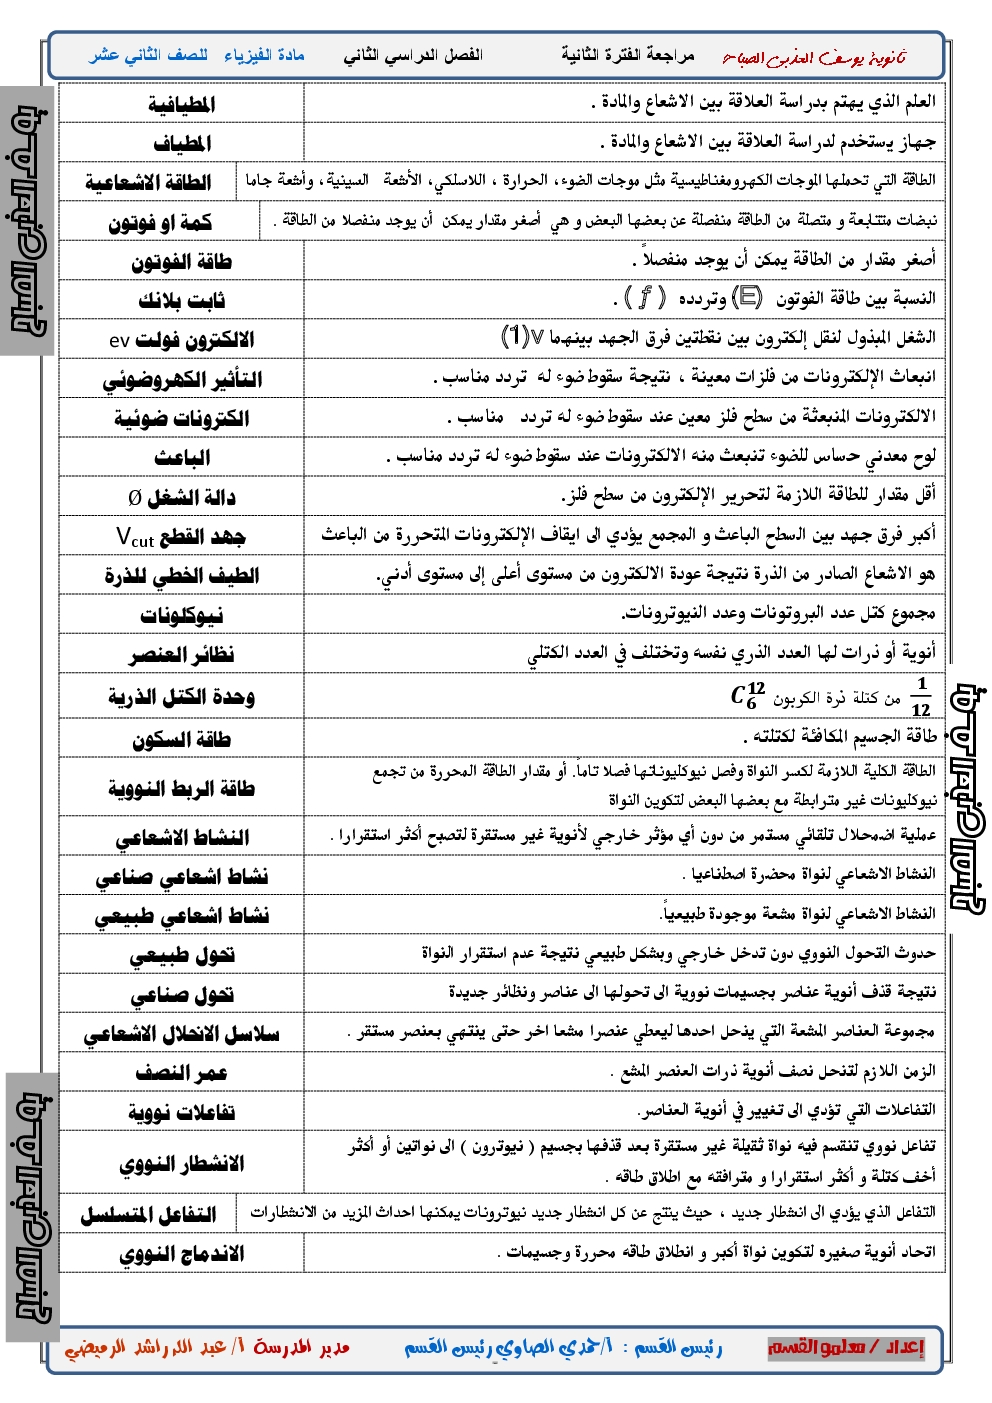 ثانوية يوسف العذبي الصباح مراجعة الفترة الثانية الفصل الدراسي الثاني مادة الفيزياء للصف الثاني عشر
العلم الذي يهتم بدراسة العلاقة بين الاشعاع والمادة . المطيافية
جهاز يستخدم لدراسة العلاقة بين الاشعاع والمادة . المطياف
الطاقة التي تحملها الموجات الكهرومغناطيسية مثل موجات الضوء، الحرارة ، اللاسلكي، الأشعة السينية، وأشعة جاما الطاقة الاشعاعية
نبضات متتابعة و متصلة من الطاقة منفصلة عن بعضها البعض و هي أصغر مقدار يمكن أن يوجد منفصلا من الطاقة . كمة او فوتون
أصغر مقدار من الطاقة يمكن أن يوجد منفصلاً . طاقة الفوتون
النسبة بين طاقة الفوتون (E) وتردده ( f ) . ثابت بلانك
الشغل المبذول لنقل إلكترون بين نقطتين فرق الجهد بينهما (1)v الالكترون فولت ev
انبعاث الإلكترونات من فلزات معينة ، نتيجة سقوط ضوء له تردد مناسب . التأثير الكهروضوئي
الالكترونات المنبعثة من سطح فلز معين عند سقوط ضوء له تردد مناسب . الكترونات ضوئية
لوح معدني حساس للضوء تنبعث منه الالكترونات عند سقوط ضوء له تردد مناسب . الباعث
أقل مقدار للطاقة اللازمة لتحرير الإلكترون من سطح فلز. دالة الشغل Ø
أكبر فرق جهد بين السطح الباعث و المجمع يؤدي الى ايقاف الإلكترونات المتحررة من الباعث جهد القطع Vcut
هو الاشعاع الصادر من الذرة نتيجة عودة الالكترون من مستوى أعلى إلى مستوى أدني. الطيف الخطي للذرة
مجموع كتل عدد البروتونات وعدد النيوترونات. نيوكلونات
أنوية أو ذرات لها العدد الذري نفسه وتختلف في العدد الكتلي نظائر العنصر
1/12 من كتلة ذرة الكربون C₆¹² وحدة الكتل الذرية
طاقة الجسيم المكافئة لكتلته . طاقة السكون
الطاقة الكلية اللازمة لكسر النواة وفصل نيوكليوناتها فصلا تاماً. أو مقدار الطاقة المحررة من تجمع
نيوكليونات غير مترابطة مع بعضها البعض لتكوين النواة طاقة الربط النووية
عملية اضمحلال تلقائي مستمر من دون أي مؤثر خارجي لأنوية غير مستقرة لتصبح أكثر استقرارا . النشاط الاشعاعي
النشاط الاشعاعي لنواة محضرة اصطناعيا . نشاط اشعاعي صناعي
النشاط الاشعاعي لنواة مشعة موجودة طبيعياً. نشاط اشعاعي طبيعي
حدوث التحول النووي دون تدخل خارجي وبشكل طبيعي نتيجة عدم استقرار النواة تحول طبيعي
نتيجة قذف أنوية عناصر بجسيمات نووية الى تحولها الى عناصر ونظائر جديدة تحول صناعي
مجموعة العناصر المشعة التي ينحل احدها ليعطي عنصرا مشعا اخر حتى ينتهي بعنصر مستقر . سلاسل الانحلال الاشعاعي
الزمن اللازم لتنحل نصف أنوية ذرات العنصر المشع . عمر النصف
التفاعلات التي تؤدي الى تغيير في أنوية العناصر. تفاعلات نووية
تفاعل نووي تنقسم فيه نواة ثقيلة غير مستقرة بعد قذفها بجسيم ( نيوترون ) الى نواتين أو أكثر
أخف كتلة و أكثر استقرارا و مترافقه مع اطلاق طاقه . الانشطار النووي
التفاعل الذي يؤدي الى انشطار جديد ، حيث ينتج عن كل انشطار جديد نيوترونات يمكنها احداث المزيد من الانشطارات التفاعل المتسلسل
اتحاد أنوية صغيره لتكوين نواة أكبر و انطلاق طاقه محررة وجسيمات . الاندماج النووي
إعداد / معلمو القسم رئيس القسم : أ/حمدي الصاوي رئيس القسم مدير المدرسة أ/ عبد الله راشد الرميضي